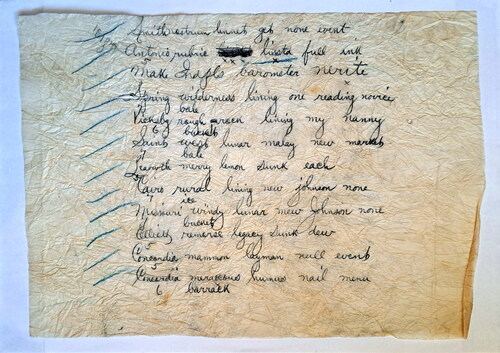 Smith nostrum linnet get none event
Antonio rubric lissa full ink
Make Indpls barometer nerite
Spring wilderness lining one reading novice
bale
Vicksbg rough rack lining my nanny
6 bucket
Saints west lunar malay new market
bale
Leavwth merry lemon sunk each
Cairo rural lining new johnson none
ice
Missouri windy lunar mew Johnson none
bucket
Elliott remorse legacy sunk dew
5
Concordia mammon layman null events
5
Concordia meraccous humus nail menu
6 barrack